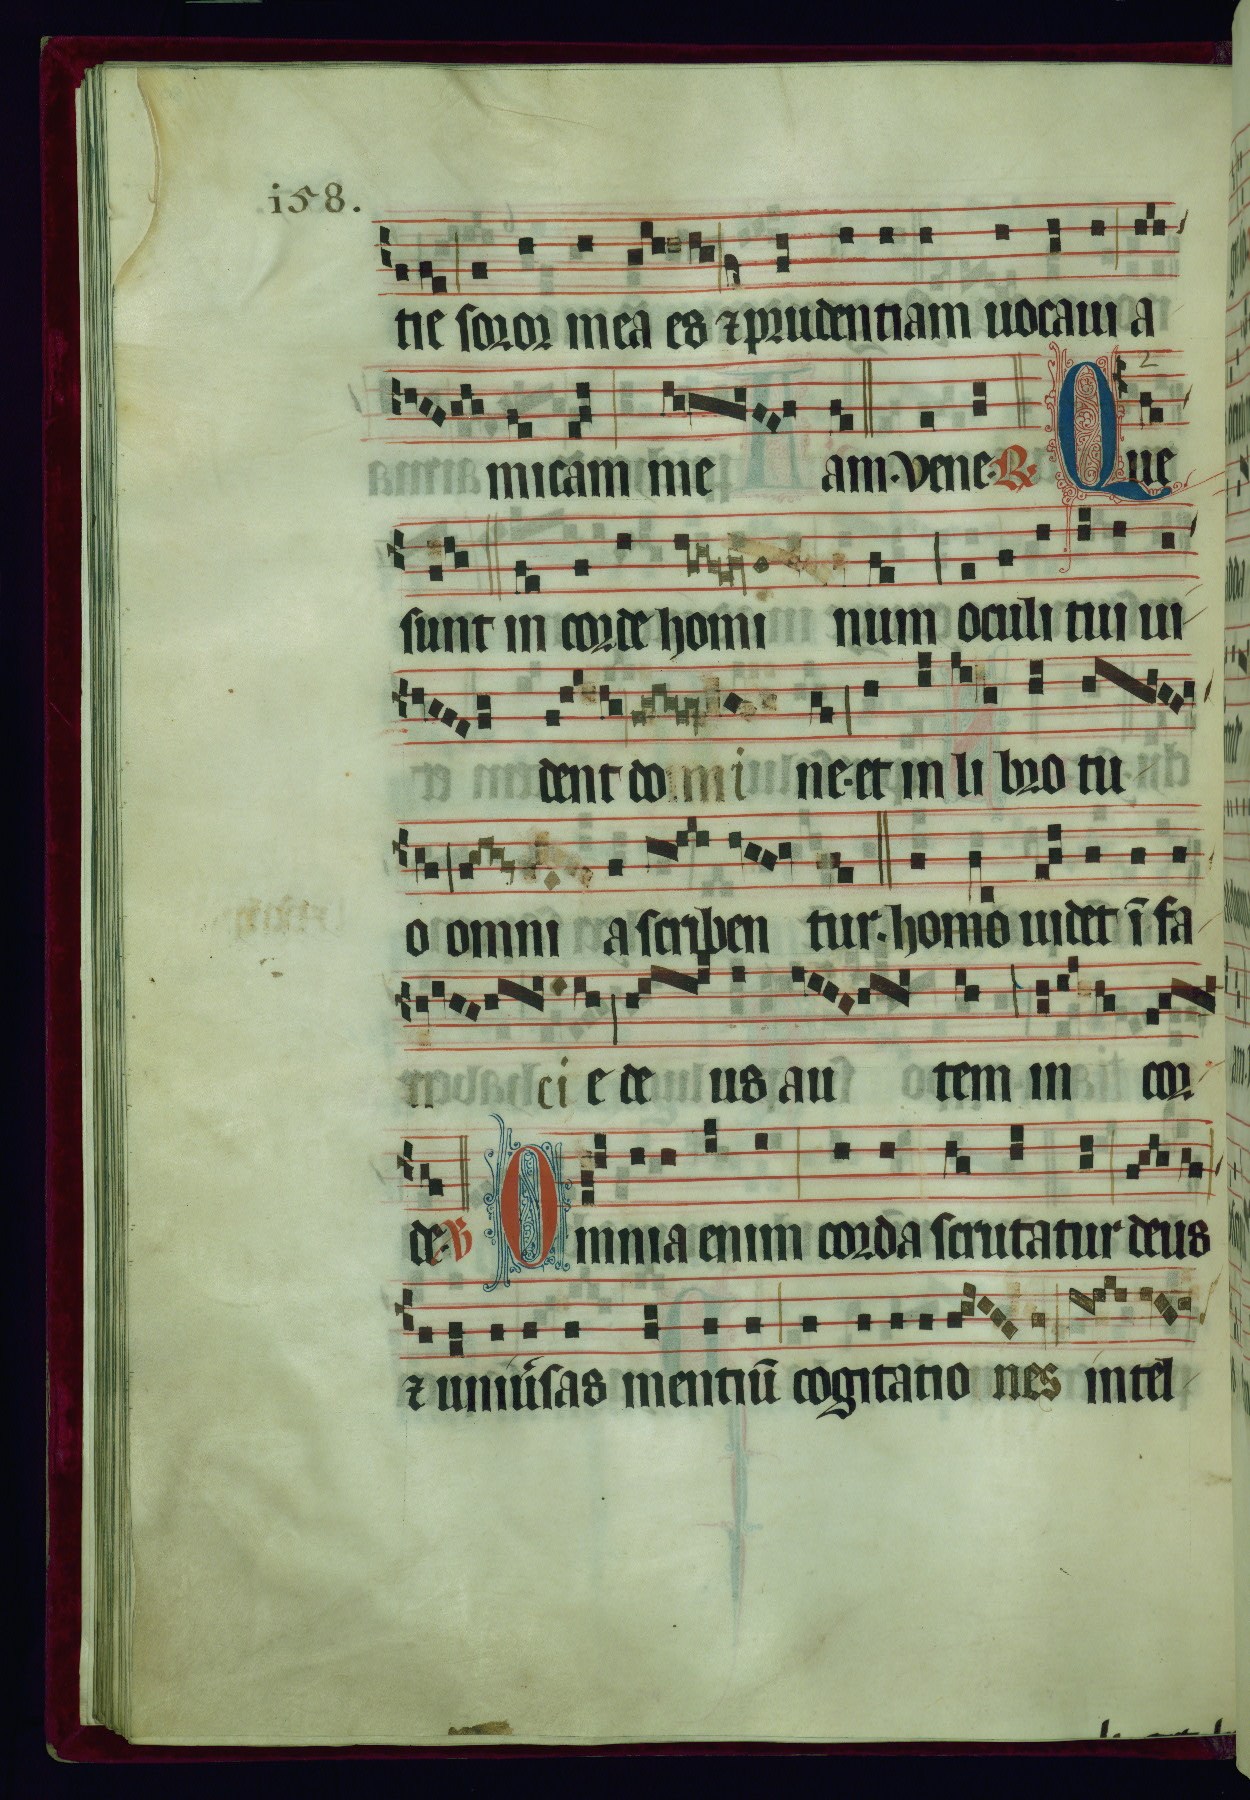 i58.
tie soror mea es ⁊ prudentiam uocaui a
micam me am. vene. R. Que
2
sunt in corde homi num oculi tui ui
dent domi ne. et in li bro tu
o omni a scriben tur. homo uidet ī fa
ci e de us au tem in cor
de. V Omnia enim corda scrutatur deus
⁊ uniūsas mentiū cogitatio nes intel